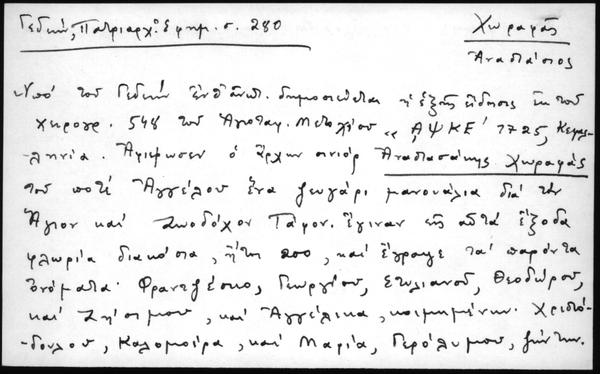 Γεδεών, Πατριαρχ. Εφημ. σ. 280
Χωραφᾶς
Ἀναστάσιος
Ὑπό τοῦ Γεδεών ἐνθ' ἀνωτ. δημοσιεύεται ἡ ἑξῆς εἴδησις ἐκ τοῦ
χειρογρ. 548 τοῦ Ἁγιοταφ. Μετοχίου " ͵ΑΨΚΕ΄ 1725, Κεφαλ-
-ληνία. Ἀφιέρωσεν ὁ ἄρχων σινιόρ Ἀναστασάκης Χωραφᾶς
τοῦ ποτέ Ἀγγέλου ἕνα ζευγάρι μανουάλια διά τόν
Ἅγιον καί Ζωοδόχον Τάφον. Ἔγιναν εἰς αὐτά ἔξοδα
φλωρία διακόσια, ἤτοι 200, καί ἔγραψε τά παρόντα
ὀνόματα· Φραντζέσκο, Γεωργίου, Στυλιανοῦ, Θεοδώρου,
καί Ζησίμου, καί Ἀγγέλικα, κοιμημένων. Χριστο-
-δούλου, Καλομοίρα, καί Μαρία, Γερολύμου, ζώντων.